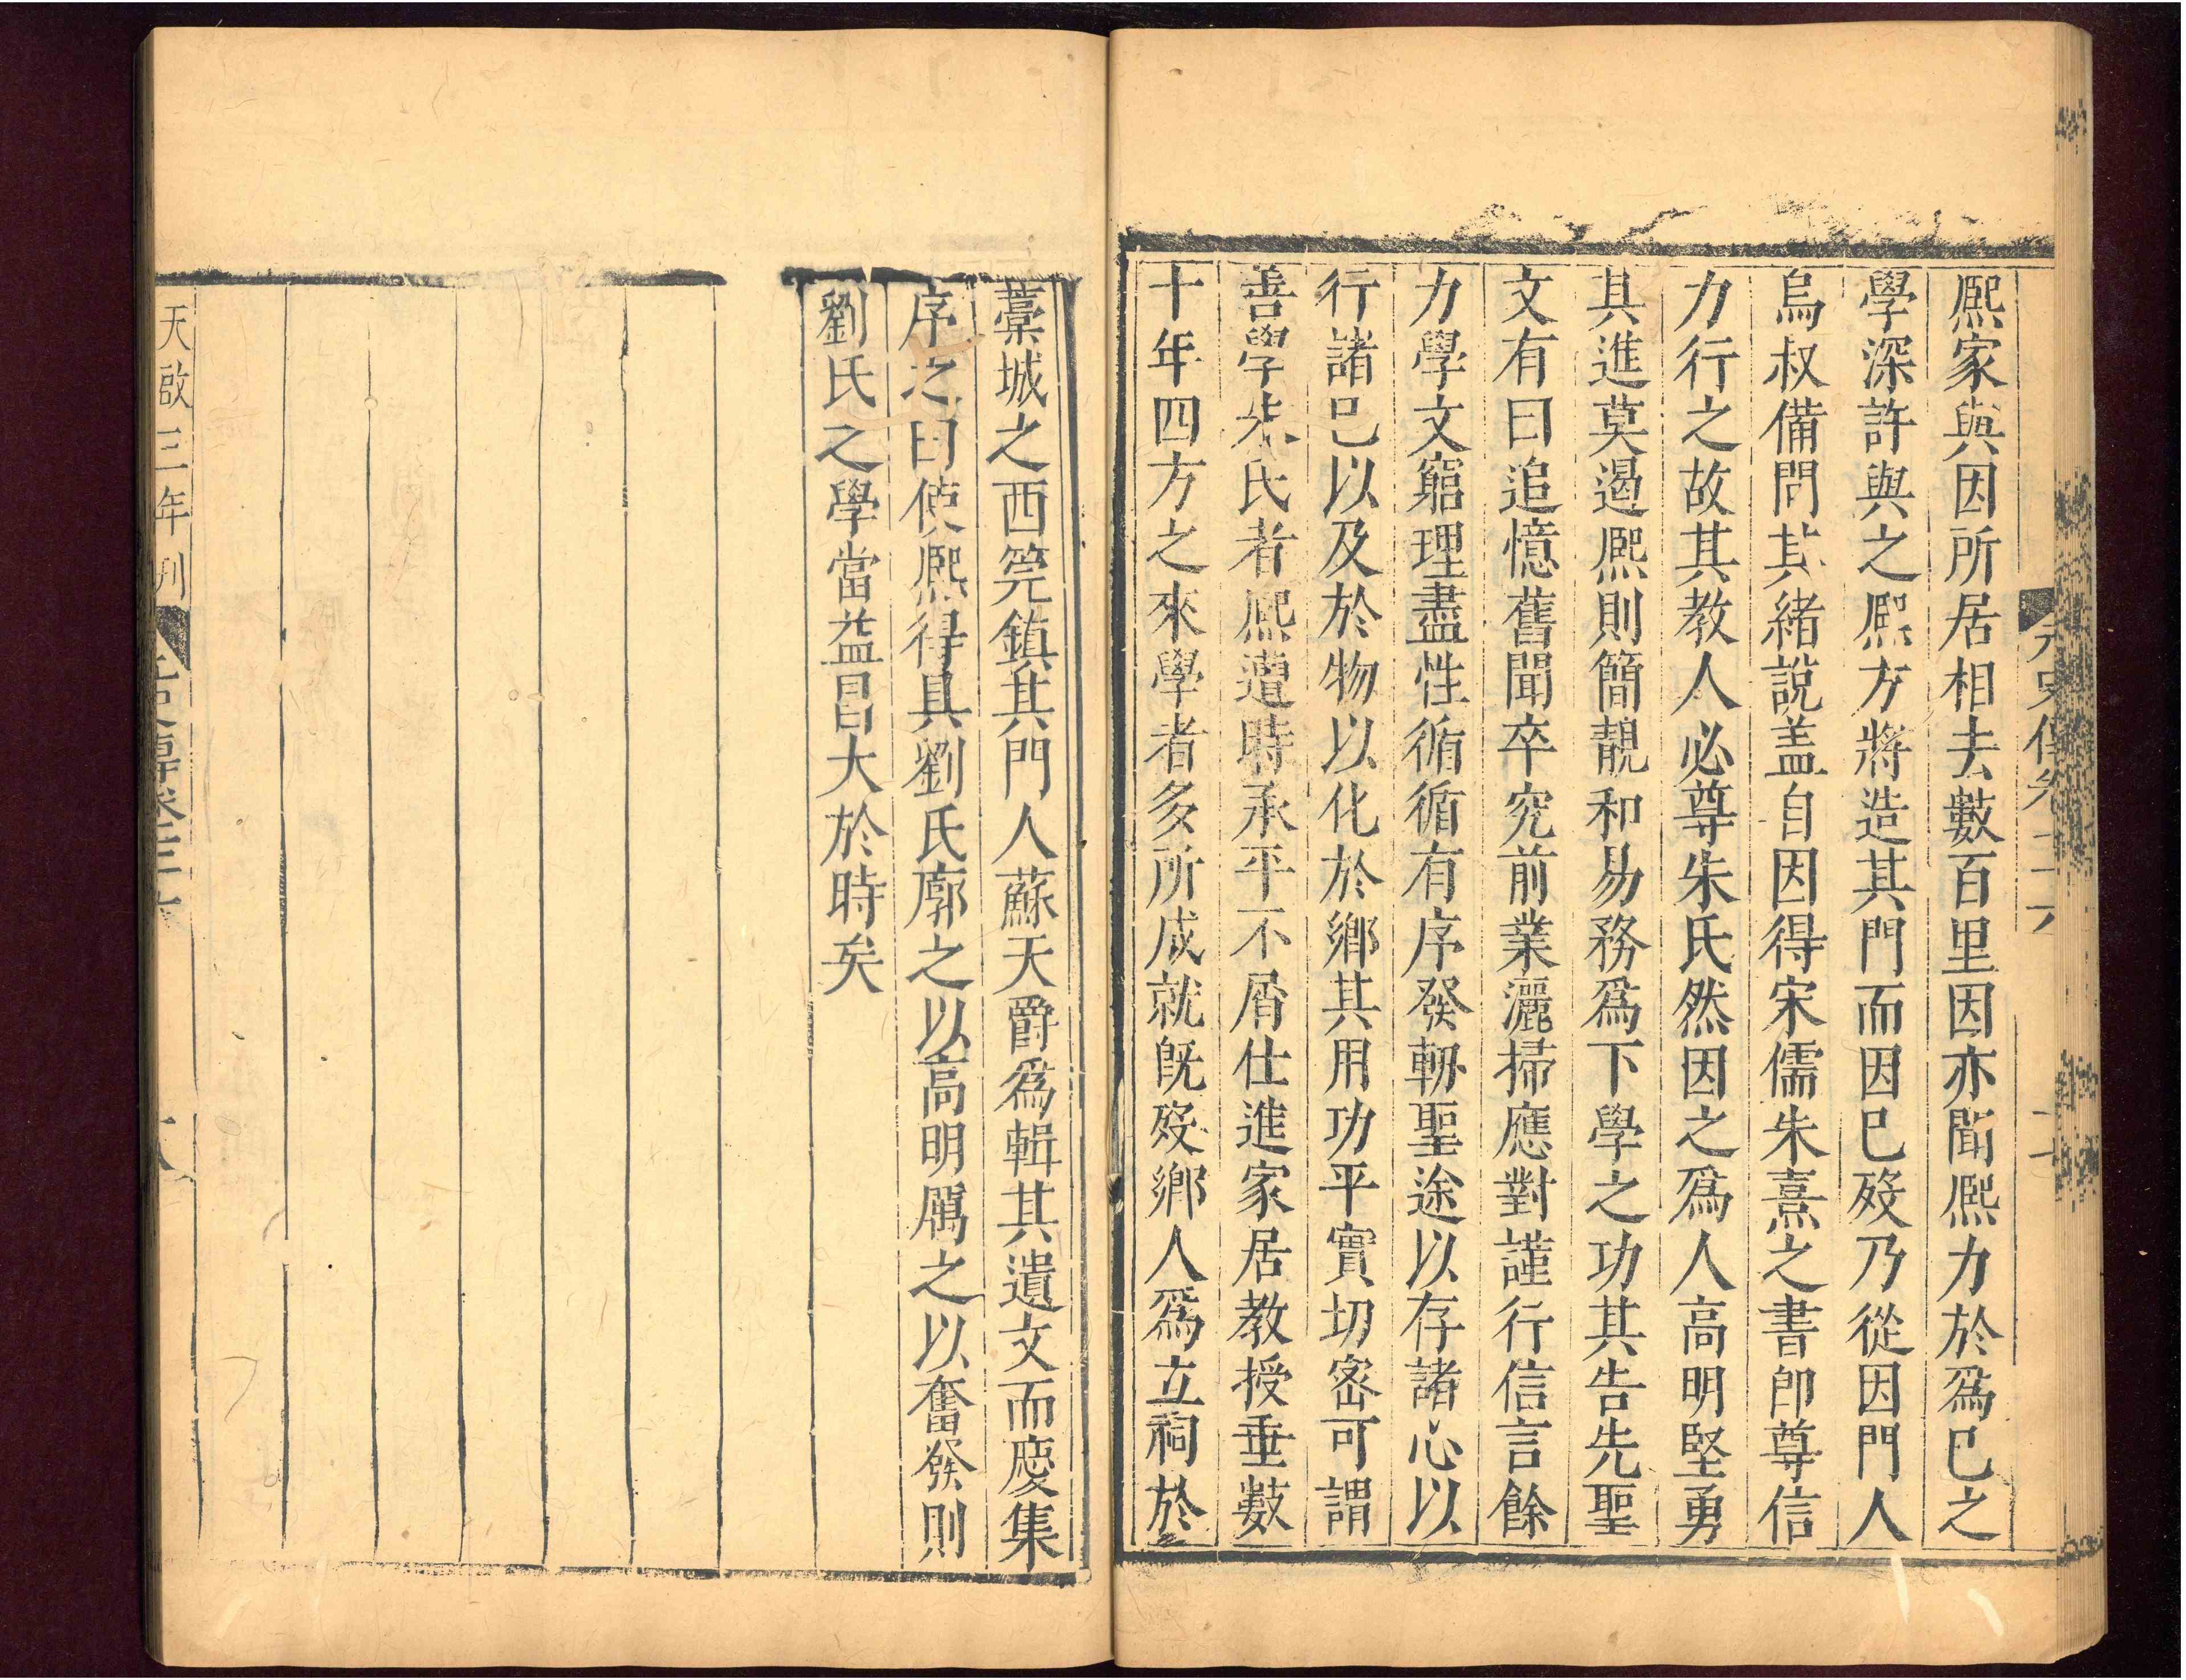 熈家與因所居相去數百里因亦聞熈力於爲巳之
學深許與之熈方將造其門而因巳歿乃從因門人
烏叔備問其緒說盖自因得宋儒朱熹之書卽尊信
力行之故其教人必尊朱氏然因之爲人高明堅勇
其進莫遏熈則簡靚和易務爲下學之功其告先聖
文有曰追憶舊聞卒究前業灑掃應對謹行信言餘
力學文窮理盡性循循有序發軔聖途以存諸心以
行諸巳以及於物以化於鄉其用功平實切密可謂
善學朱氏者熈遭時承平不屑仕進家居教授垂數
十年四方之來學者多所成就旣歿鄉人爲立祠於
藁城之西筦鎮其門人蘇天爵爲輯其遺文而虞集
序之曰使熈得具劉氏廓之以高明厲之以奮發則
劉氏之學當益昌大於時矣
天啟三年刊